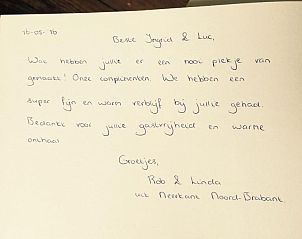 16-05-16
Beste Ingrid & Luc,
Wat hebben jullie er een mooi plekje van
gemaakt! Onze complimenten. We hebben een
super fijn en warm verblijf bij jullie gehad.
Bedankt voor jullie gastvrijheid en warme
onthaal.
Groetjes,
Rob & Linda
uit Neerkant Noord-Brabant.